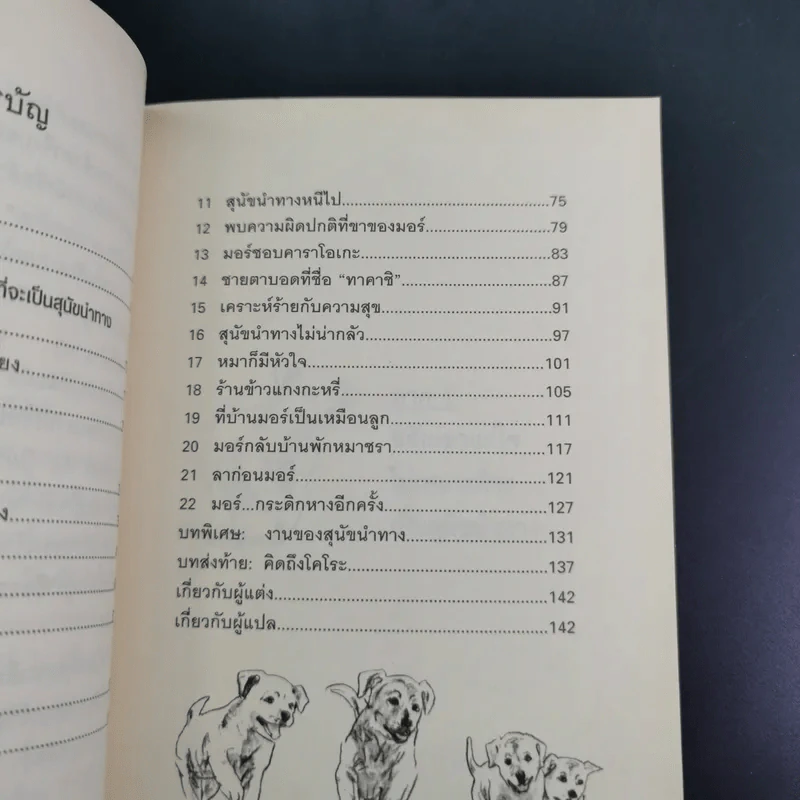 บัญ
ที่จะเป็นสุนัขนำทาง
11 สุนัขนำทางหนีไป 75
12 พบความผิดปกติที่ขาของมอร์ 79
13 มอร์ชอบคาราโอเกะ 83
14 ชายตาบอดที่ชื่อ “ทาคาชิ” 87
15 เคราะห์ร้ายกับความสุข 91
16 สุนัขนำทางไม่น่ากลัว 97
17 หมาก็มีหัวใจ 101
18 ร้านข้าวแกงกะหรี่ 105
19 ที่บ้านมอร์เป็นเหมือนลูก 111
20 มอร์กลับบ้านพักหมาชรา 117
21 ลาก่อนมอร์ 121
22 มอร์...กระดิกหางอีกครั้ง 127
บทพิเศษ: งานของสุนัขนำทาง 131
บทส่งท้าย: คิดถึงโคโระ 137
เกี่ยวกับผู้แต่ง 142
เกี่ยวกับผู้แปล 142